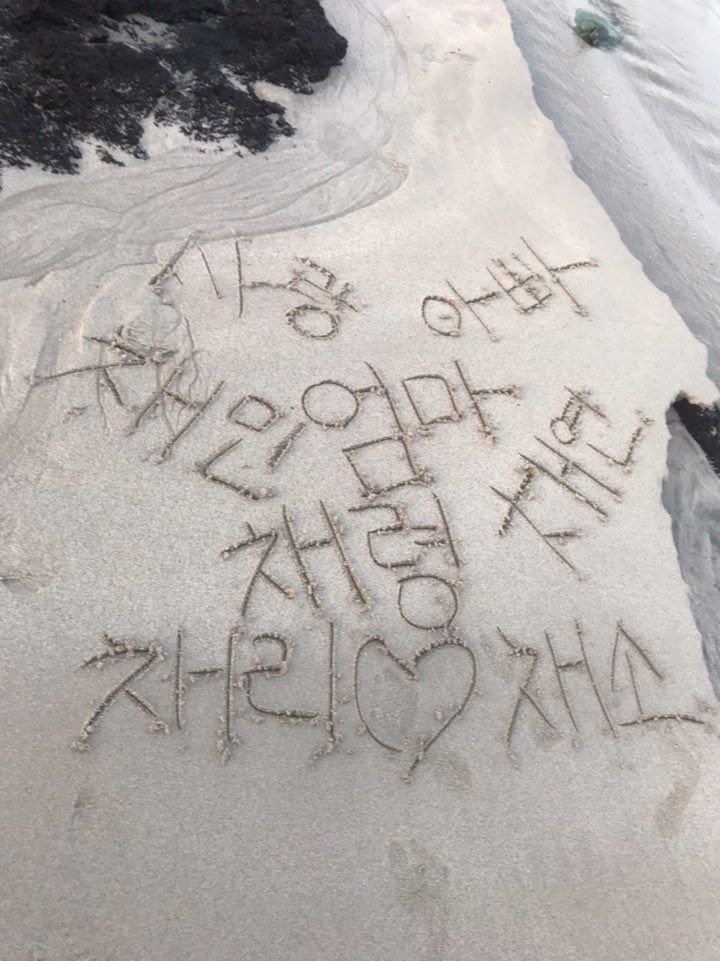 사랑 아빠
채민 엄마 채연
채령
채리♡채소